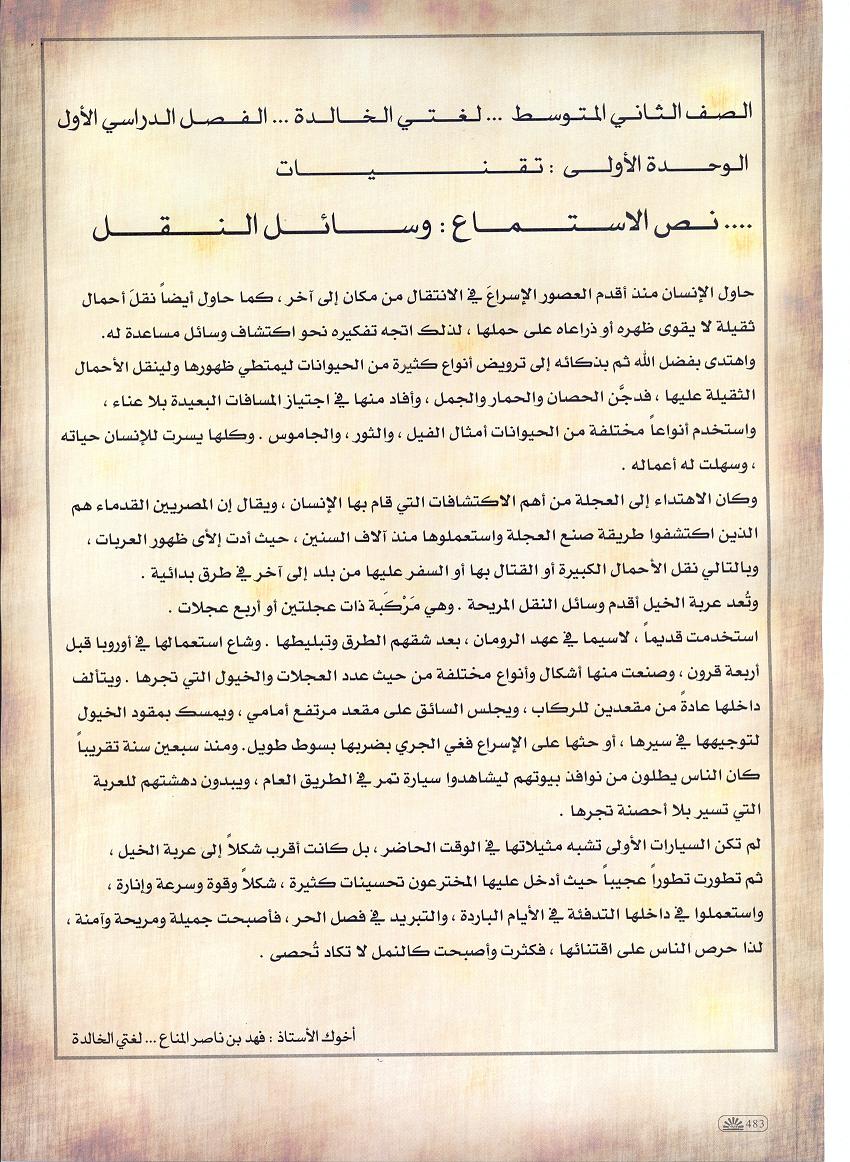 الصف الثاني المتوسط ... لغتي الخالدة ... الفصل الدراسي الأول
الوحدة الأولى : تقنيات
.... نص الاستماع : وسائل النقل
حاول الإنسان منذ أقدم العصور الإسراعَ في الانتقال من مكان إلى آخر ، كما حاول أيضاً نقلَ أحمال
ثقيلة لا يقوى ظهره أو ذراعاه على حملها ، لذلك اتجه تفكيره نحو اكتشاف وسائل مساعدة له.
واهتدى بفضل الله ثم بذكائه إلى ترويض أنواع كثيرة من الحيوانات ليمتطي ظهورها ولينقل الأحمال
الثقيلة عليها ، فدجَّن الحصان والحمار والجمل ، وأفاد منها في اجتياز المسافات البعيدة بلا عناء ،
واستخدم أنواعاً مختلفة من الحيوانات أمثال الفيل ، والثور ، والجاموس . وكلها يسرت للإنسان حياته
، وسهلت له أعماله .
وكان الاهتداء إلى العجلة من أهم الاكتشافات التي قام بها الإنسان ، ويقال إن المصريين القدماء هم
الذين اكتشفوا طريقة صنع العجلة واستعملوها منذ آلاف السنين ، حيث أدت إلأى ظهور العربات ،
وبالتالي نقل الأحمال الكبيرة أو القتال بها أو السفر عليها من بلد إلى آخر في طرق بدائية .
وتُعد عربة الخيل أقدم وسائل النقل المريحة . وهي مَرْكَبة ذات عجلتين أو أربع عجلات .
استخدمت قديماً ، لاسيما في عهد الرومان ، بعد شقهم الطرق وتبليطها . وشاع استعمالها في أوروبا قبل
أربعة قرون ، وصنعت منها أشكال وأنواع مختلفة من حيث عدد العجلات والخيول التي تجرها . ويتألف
داخلها عادةً من مقعدين للركاب ، ويجلس السائق على مقعد مرتفع أمامي ، ويمسك بمقود الخيول
لتوجيهها في سيرها ، أو حثها على الإسراع فغي الجري بضربها بسوط طويل. ومنذ سبعين سنة تقريباً
كان الناس يطلون من نوافذ بيوتهم ليشاهدوا سيارة تمر في الطريق العام ، ويبدون دهشتهم للعربة
التي تسير بلا أحصنة تجرها .
لم تكن السيارات الأولى تشبه مثيلاتها في الوقت الحاضر ، بل كانت أقرب شكلاً إلى عربة الخيل ،
ثم تطورت تطوراً عجيباً حيث أدخل عليها المخترعون تحسينات كثيرة ، شكلاً وقوة وسرعة وإنارة ،
واستعملوا في داخلها التدفئة في الأيام الباردة ، والتبريد في فصل الحر ، فأصبحت جميلة ومريحة وآمنة ،
لذا حرص الناس على اقتنائها ، فكثرت وأصبحت كالنمل لا تكاد تُحصى .
أخوك الأستاذ : فهد بن ناصر المناع ... لغتي الخالدة
483